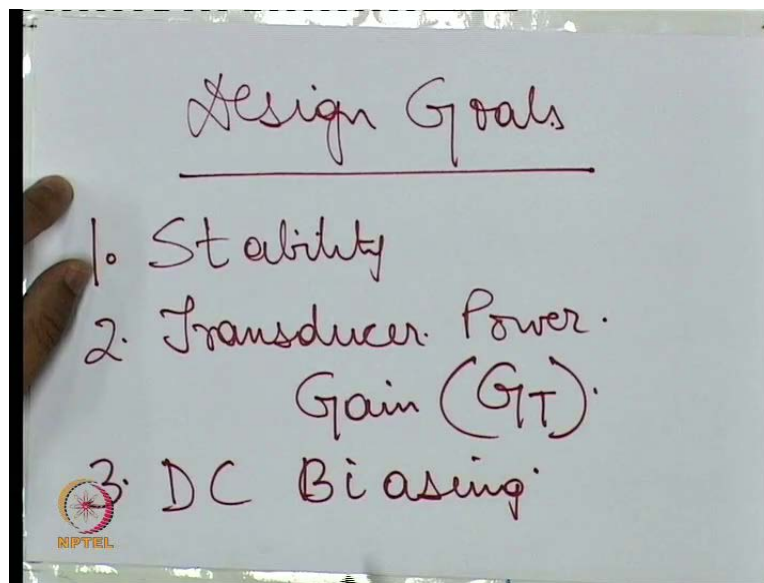 Design Goals
1. Stability
2. Transducer Power
Gain (GT).
3. DC Biasing
NPTEL